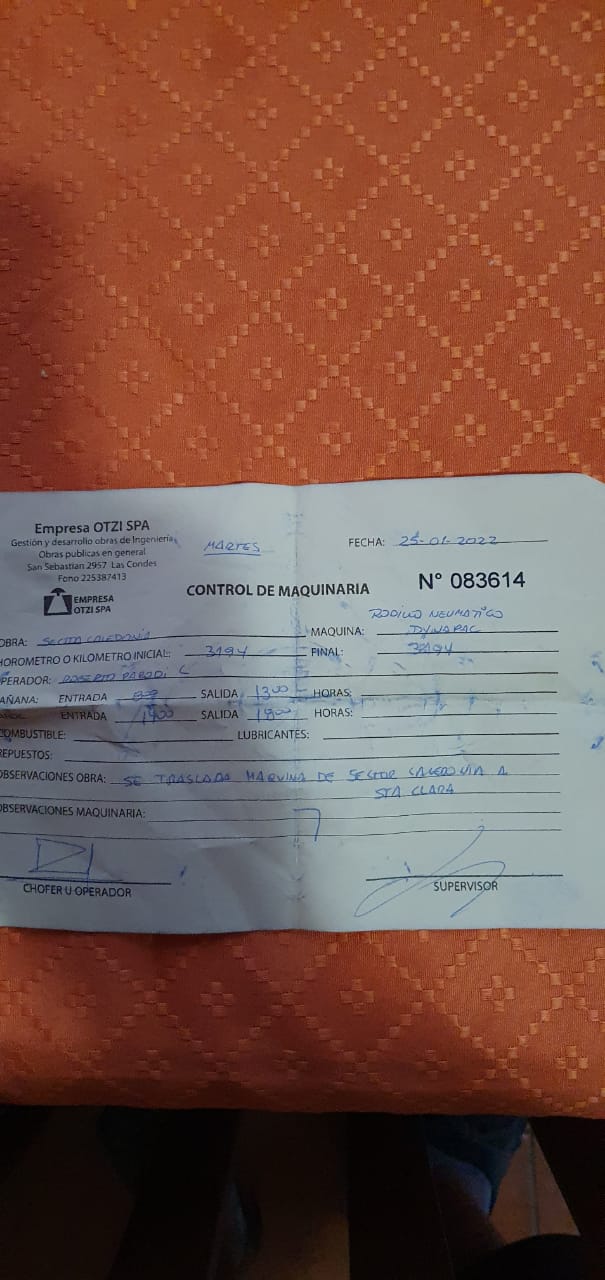 Empresa OTZI SPA
Gestión y desarrollo obras de Ingeniería,
Obras publicas en general
San Sebastian 2957 Las Condes
Fono 225387413
EMPRESA
OTZI SPA
MARTES
FECHA: 25-01-2022
CONTROL DE MAQUINARIA
N° 083614
RODILLO NEUMATICO
OBRA: SECTOR CALEDONIA MAQUINA: DYNAPAC
HOROMETRO O KILOMETRO INICIAL: 3194 FINAL: 3194
OPERADOR: ROBERTO PARODI C
AÑANA: ENTRADA SALIDA 13:00 HORAS:
ENTRADA 14:00 SALIDA HORAS:
COMBUSTIBLE: LUBRICANTES:
REPUESTOS:
OBSERVACIONES OBRA: SE TRASLADA MAQUINA DE SECTOR CALEDONIA A
STA CLARA
OBSERVACIONES MAQUINARIA:
CHOFER U OPERADOR
SUPERVISOR